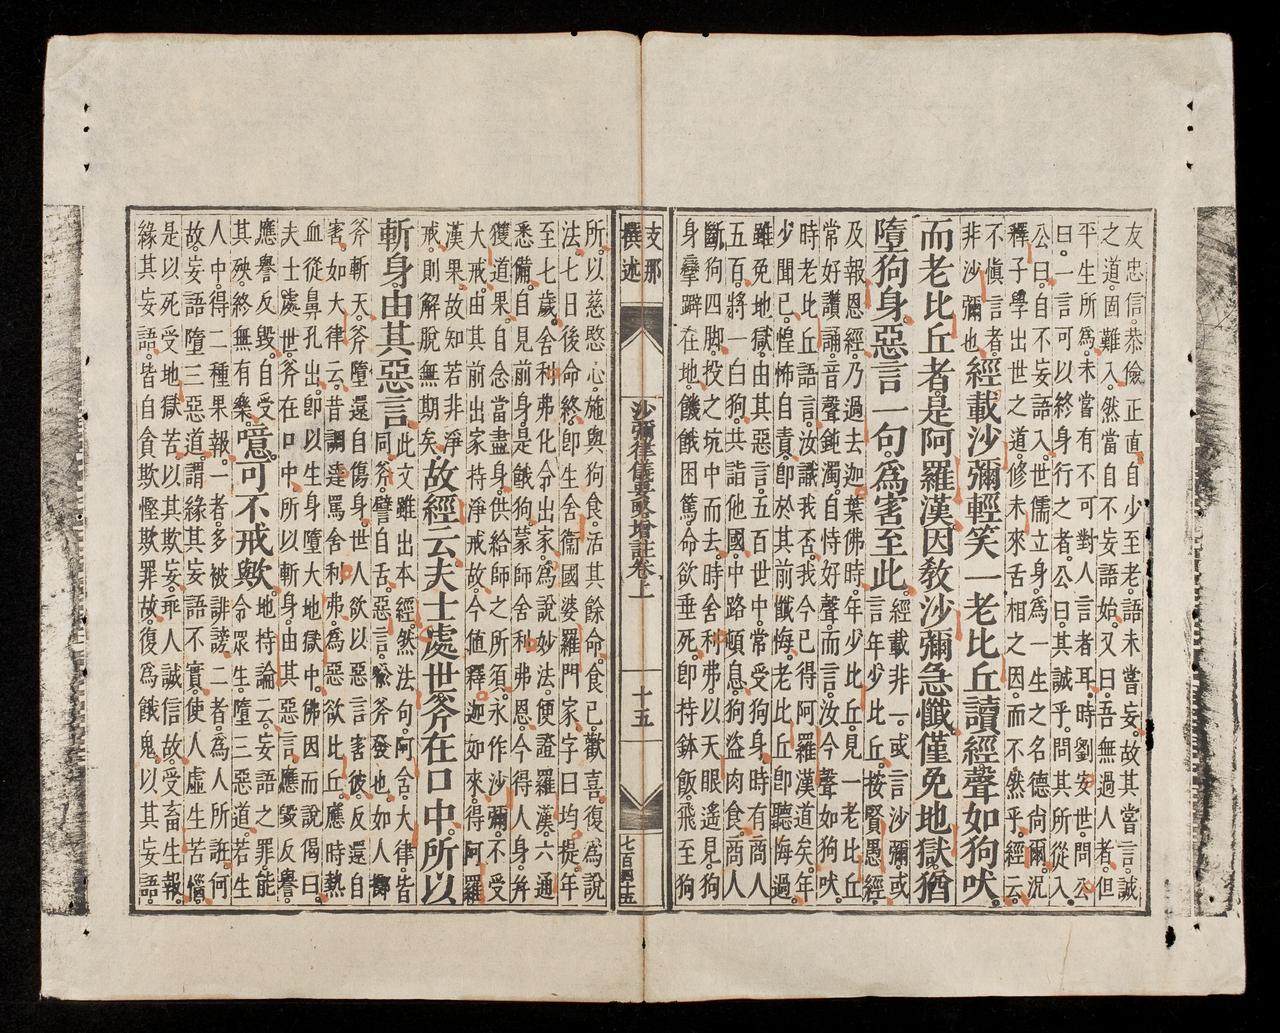 友忠信恭儉正直自少至老語未嘗妄故其嘗言誠
之道固難入然當自不妄語始又曰吾無過人者但
平生所為未嘗有不可對人言者耳時劉安世問公
曰一言可以終身行之者公曰其誠乎問其所從入
公曰自不妄語入世儒立身為一生之名德尚爾況
釋子學出世之道修未來舌相之因而不然乎經云
不慎言者
非沙彌也經載沙彌輕笑一老比丘讀經聲如狗吠
而老比丘者是阿羅漢因教沙彌急懺僅免地獄猶
墮狗身惡言一句為害至此經載非一或言沙彌或
言年少比丘按賢愚經
及報恩經乃過去迦葉佛時年少比丘見一老比丘
常好讚誦音聲鈍濁自恃好聲而言汝今聲如狗吠
時老比丘語言汝識我否我今已得阿羅漢道矣年
少聞已惶怖自責即於其前懺悔老比丘即聽悔過
雖免地獄由其惡言五百世中常受狗身時有商人
五百將一白狗共詣他國中路頓息狗盜肉食商人
斷狗四脚投之坑中而去時舍利弗以天眼遙見狗
身攣躃在地饑餓困篤命欲垂死即持鉢飯飛至狗
支那
撰述
沙彌律儀要略增註卷上
十五
七百四十五
所以慈愍心施與狗食活其餘命食已歡喜復為說
法七日後命終即生舍衞國婆羅門家字曰均提年
至七歲舍利弗化令出家為說妙法便證羅漢六通
悉備自見前身是餓狗蒙師舍利弗恩今得人身并
獲道果自念當盡身供給師之所須永作沙彌不受
大戒由其前出家持淨戒故今值釋迦如來得阿羅
漢果故知若非淨
戒則解脫無期矣故經云夫士處世斧在口中所以
斬身由其惡言此文雖出本經然法句阿含大律皆
同斧譬自舌惡言喩斧發也如人擲
斧斬天斧墮還自傷身世人欲以惡言害彼反還自
害如大律云昔調達罵舍利弗為惡欲比丘應時熱
血從鼻孔出即以生身墮大地獄中佛因而說偈曰
夫士處世斧在口中所以斬身由其惡言應毀反譽
應譽反毀自受
其殃終無有樂噫可不戒歟地持論云妄語之罪能
令眾生墮三惡道若生
人中得二種果報一者多被誹謗二者為人所誑何
故妄語墮三惡道謂緣其妄語不實使人虛生苦惱
是以死受地獄苦以其欺妄乖人誠信故受畜生報
緣其妄語皆自貪欺慳欺罪故復為餓鬼以其妄語